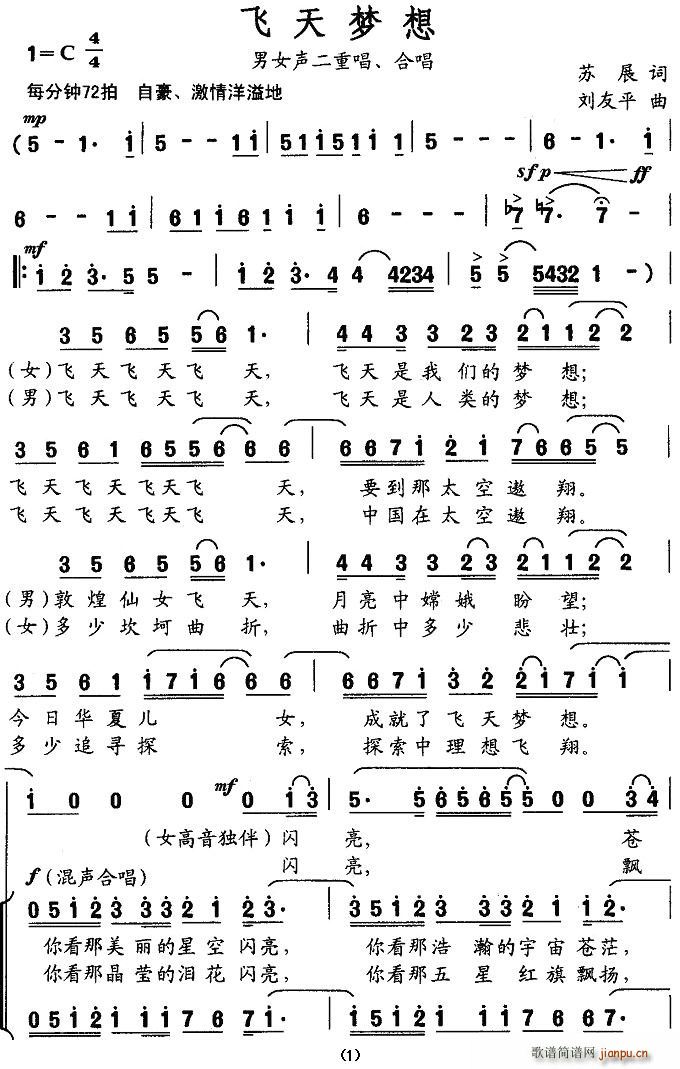 飞天梦想
1=C 4/4
男女声二重唱、合唱
苏 展 词
每分钟72拍 自豪、激情洋溢地
刘友平 曲
mp
(5 - 1· i | 5 - - 1 i | 5 1 i 5 1 i 1 i | 5 - - - | 6 - 1· i |
sfp ff
6 - - 1 i | 6 1 i 6 1 i 1 i | 6 - - - | ♭7 ♭7· 7 - |
mf
‖: i 2 3· 5 5 - | i 2 3· 4 4 4234 | 5 5 5432 1 - ) |
3 5 6 5 5 6 1· | 4 4 3 3 2 3 2 1 1 2 2 |
(女)飞天飞天飞 天, 飞天是我们的梦 想;
(男)飞天飞天飞 天, 飞天是人类的梦 想;
3 5 6 1 6 5 5 6 6 6 | 6 6 7 i 2 1 7 6 6 5 5 |
飞天飞天飞天飞 天, 要到那太空遨 翔。
飞天飞天飞天飞 天, 中国在太空遨 翔。
3 5 6 5 5 6 1· | 4 4 3 3 2 3 2 1 1 2 2 |
(男)敦煌仙女飞 天, 月亮中嫦娥 盼望;
(女)多少坎坷曲 折, 曲折中多少 悲壮;
3 5 6 1 1 7 1 6 6 6 | 6 6 7 i 3 2 2 1 7 i i |
今日华夏儿 女, 成就了飞天梦 想。
多少追寻探 索, 探索中理想飞 翔。
mf
i 0 0 0 0 i 3 | 5· 5 6 5 6 5 5 0 0 3 4 |
(女高音独伴)闪 亮, 苍
闪 亮, 飘
f (混声合唱)
0 5 i 2 3 3 3 2 i 2 3· | 3 5 i 2 3 3 3 2 i 2 3· |
你看那美丽的星空闪亮, 你看那浩瀚的宇宙苍茫,
你看那晶莹的泪花闪亮, 你看那五星红旗飘扬,
0 5 i 2 i i i 7 6 7 i· | i 5 i 2 i i i 7 6 7 i· |
(1)
歌谱简谱网
jianpu.cn